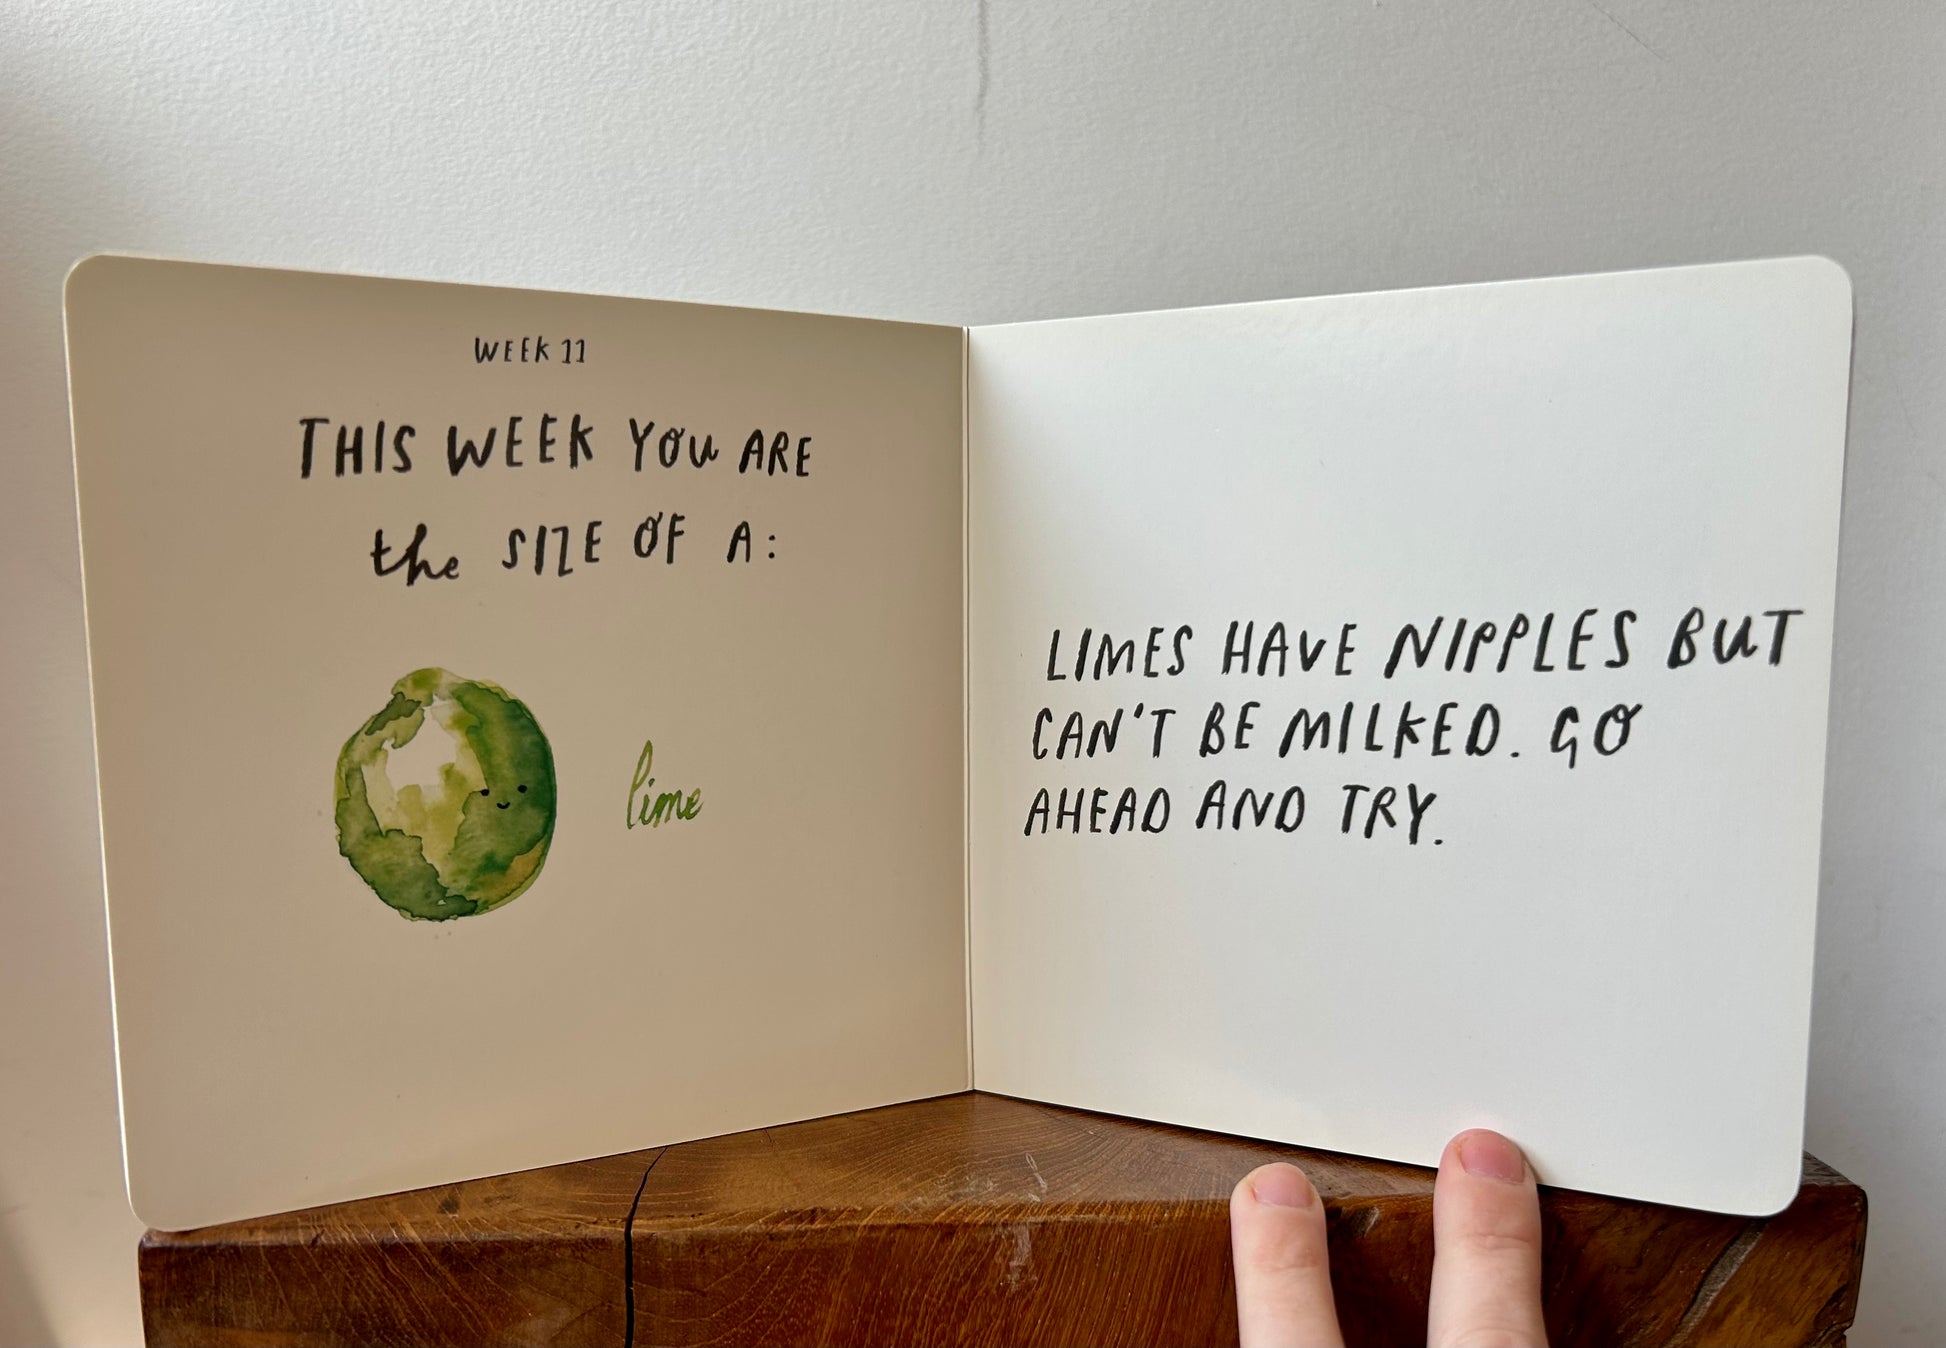 WEEK 11
THIS WEEK YOU ARE
the SIZE OF A:
lime
LIMES HAVE NIPPLES BUT
CAN'T BE MILKED. GO
AHEAD AND TRY.